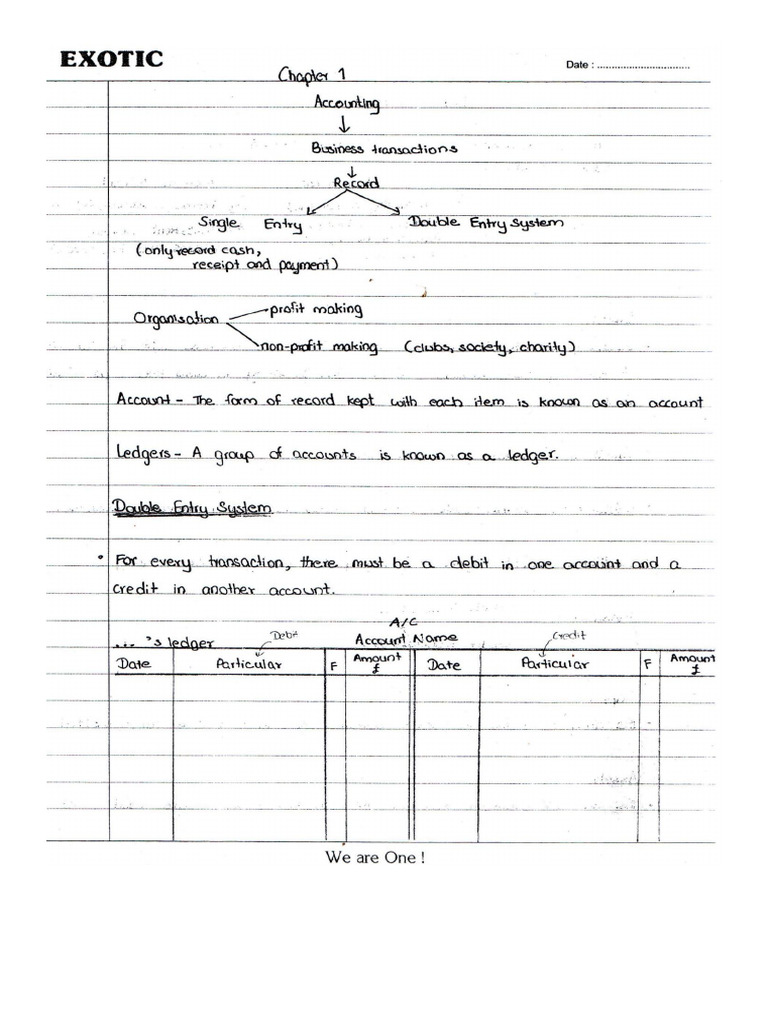 EXOTIC
Date : ................................
Chapter 1
Accounting
Business transactions
Record
Single Entry Double Entry System
(only record cash,
receipt and payment)
profit making
Organisation
non-profit making (clubs, society, charity)
Account - The form of record kept with each item is known as an account
Ledgers - A group of accounts is known as a ledger.
Double Entry System
• For every transaction, there must be a debit in one account and a
credit in another account.
A/C
... 's ledger Debit Account Name Credit
Date Particular F Amount £ Date Particular F Amount £
We are One !